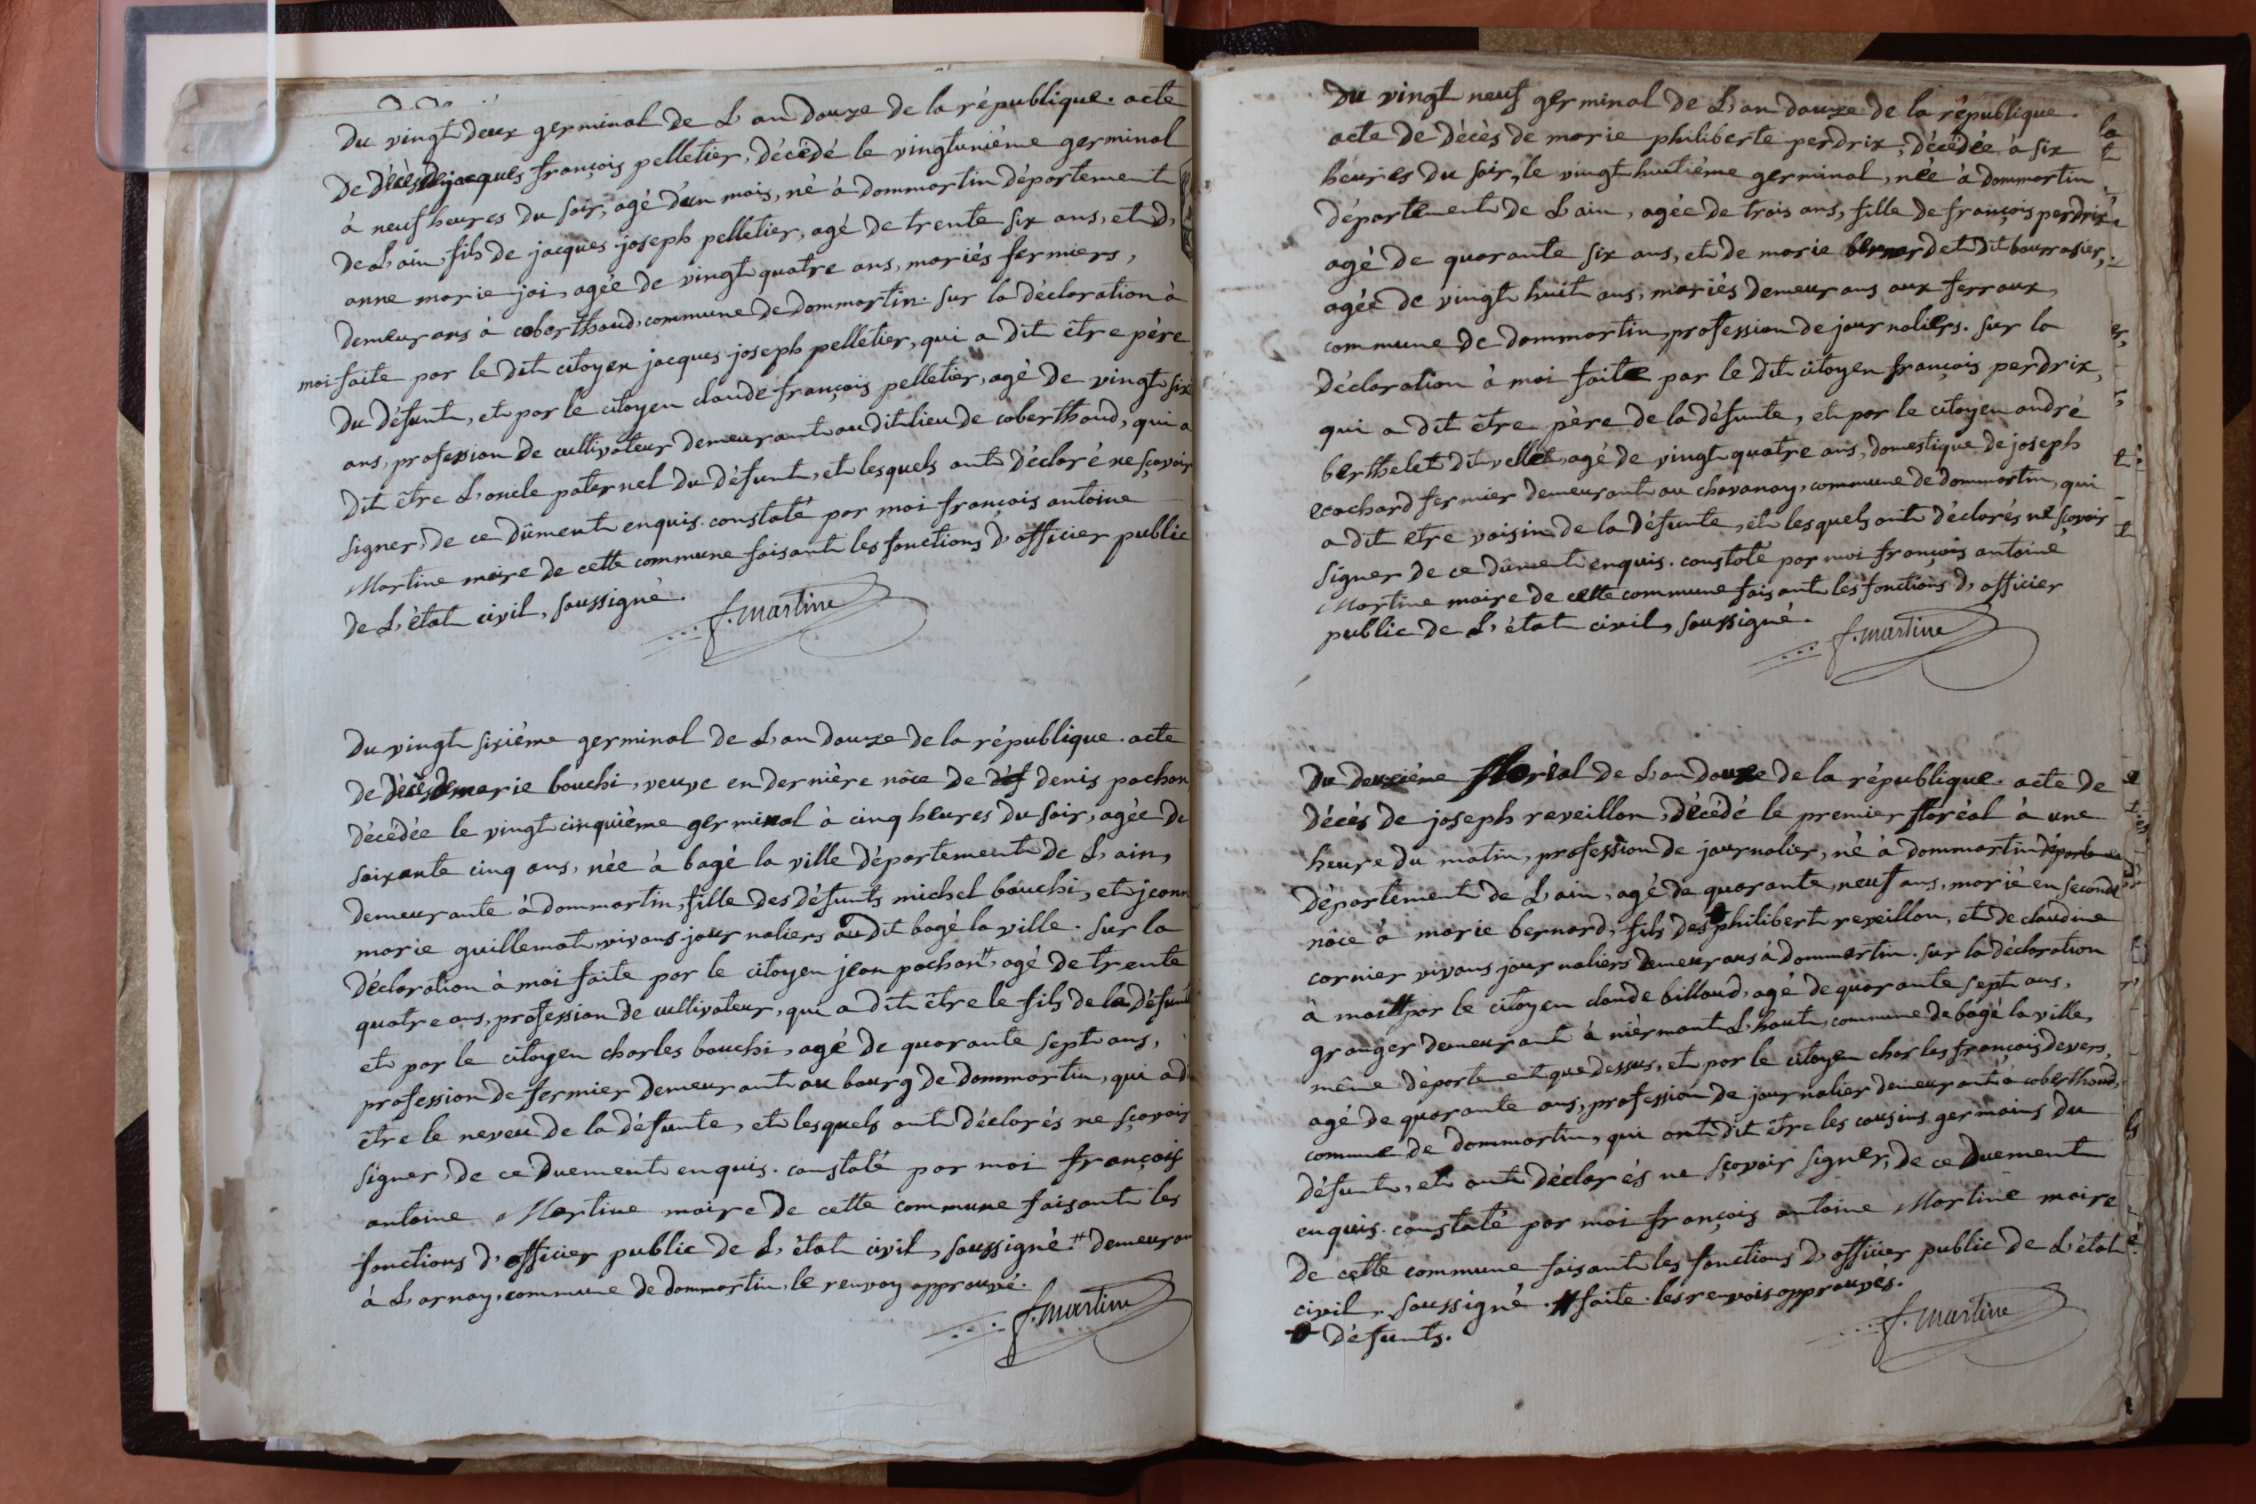 du vingt deux germinal de L'an douze de la république. acte
de décès de jacques françois pelletier, décédé le vingtunième germinal
à neuf heures du soir, agé d'un mois, né à dommartin département
de L'ain, fils de jacques joseph pelletier, agé de trente six ans, et d,
anne marie joi, agée de vingt quatre ans, mariés fermiers,
demeurans à coberthoud, commune de dommartin. sur la déclaration à
moi faite par le dit citoyen jacques joseph pelletier, qui a dit être père
du défunt, et par le citoyen claude françois pelletier, agé de vingt six
ans, profession de cultivateur demeurant au dit lieu de coberthoud, qui a
dit être L'oncle paternel du défunt, et lesquels ont déclaré ne sçavoir
signer, de ce dûment enquis. constaté par moi françois antoine
Martine maire de cette commune faisant les fonctions d'officier public
de L'état civil, soussigné.
f. martine
du vingt sixième germinal de L'an douze de la république. acte
de décès de marie bouchi, veuve en dernière nôce de denis pochon
décédée le vingt cinquième germinal à cinq heures du soir, agée de
soixante cinq ans, née à bagé la ville département de L'ain,
demeurante à dommartin, fille des défunts michel bouchi, et jeann
marie guillemot vivans journaliers au dit bagé la ville. sur la
déclaration à moi faite par le citoyen jean pochon #, agé de trente
quatre ans, profession de cultivateur, qui a dit être le fils de la défunt
et par le citoyen charles bouchi, agé de quarante sept ans,
profession de fermier demeurant au bourg de dommartin, qui a d
être le neveu de la défunte, et lesquels ont déclarés ne sçavoir
signer, de ce duement enquis. constaté par moi françois
antoine Martine maire de cette commune faisant les
fonctions d'officier public de L'état civil, soussigné. # demeuran
à L'arnay, commune de dommartin, le renvoy approuvé.
f. martine
du vingt neuf germinal de L'an douze de la république.
acte de décès de marie philiberte perdrix, décédée à six
heures du soir, le vingt huitième germinal, née à dommartin
département de L'ain, agée de trois ans, fille de françois perdrix
agé de quarante six ans, et de marie bernardet dit bourrasier,
agée de vingt huit ans, mariés demeurans aux ferraux,
commune de dommartin, profession de journaliers. sur la
déclaration à moi faite par le dit citoyen françois perdrix,
qui a dit être père de la défunte, et par le citoyen andré
berthelet dit vellet, agé de vingt quatre ans, domestique de joseph
ecochard fermier demeurant au chavanay, commune de dommartin, qui
a dit etre voisin de la défunte, et lesquels ont déclarés ne sçavoir
signer de ce dûment enquis. constaté par moi françois antoine
Martine maire de cette commune faisant les fonctions d'officier
public de L'état civil, soussigné.
f. martine
du deuxième floréal de L'an douze de la république. acte de
décès de joseph reveillon, décédé le premier floréal à une
heure du matin, profession de journalier, né à dommartin
département de L'ain, agé de quarante neuf ans, marié en seconde
nôce à marie bernard, fils des philibert reveillon, et de claudine
cornier vivans journaliers demeurans à dommartin. sur la déclaration
à moi # par le citoyen claude billoud, agé de quarante sept ans,
granger demeurant à niermont L'haut, commune de bagé la ville,
même département que dessus, et par le citoyen charles françois devers,
agé de quarante ans, profession de journalier demeurant à coberthoud,
commune de dommartin, qui ont dit être les cousins germains du
défunt, et ont déclarés ne sçavoir signer, de ce duement
enquis. constaté par moi françois antoine Martine maire
de cette commune faisant les fonctions d'officier public de L'état
civil, soussigné. # faite. les renvois approuvés.
défunts.
f. martine